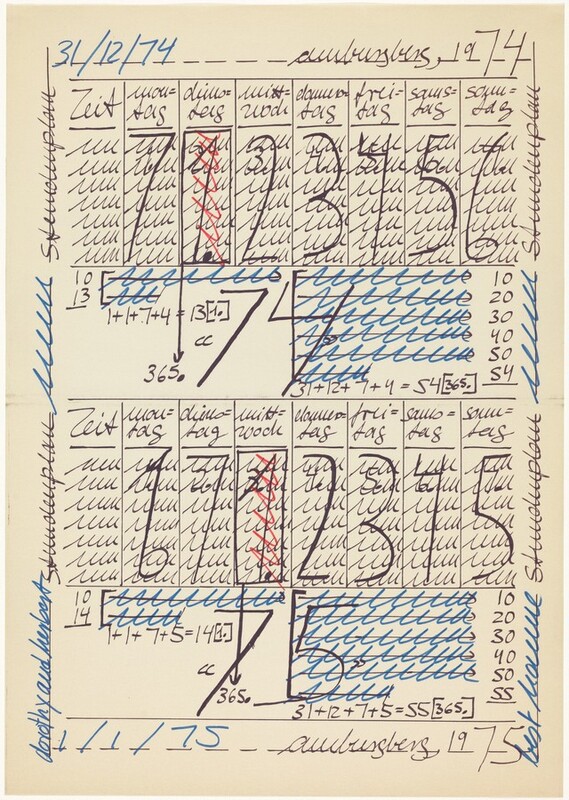 31/12/74 amburgberg, 1974
Stundenplan
Zeit mon=tag diens=tag mitt=woch donners=tag frei=tag sams=tag sonn=tag
7 1. 2 3 4 5 6
Stundenplan
10
13
1+1+7+4=13[1.]
365.
74
10
20
30
40
50
54
31+12+7+4=54[365.]
Stundenplan
Zeit mon=tag diens=tag mitt=woch donners=tag frei=tag sams=tag sonn=tag
6 7 1. 2 3 4 5
Stundenplan
10
14
1+1+7+5=14[1.]
365.
75
10
20
30
40
50
55
31+12+7+5=55[365.]
dorothy and herbert
1/1/75 amburgberg, 1975